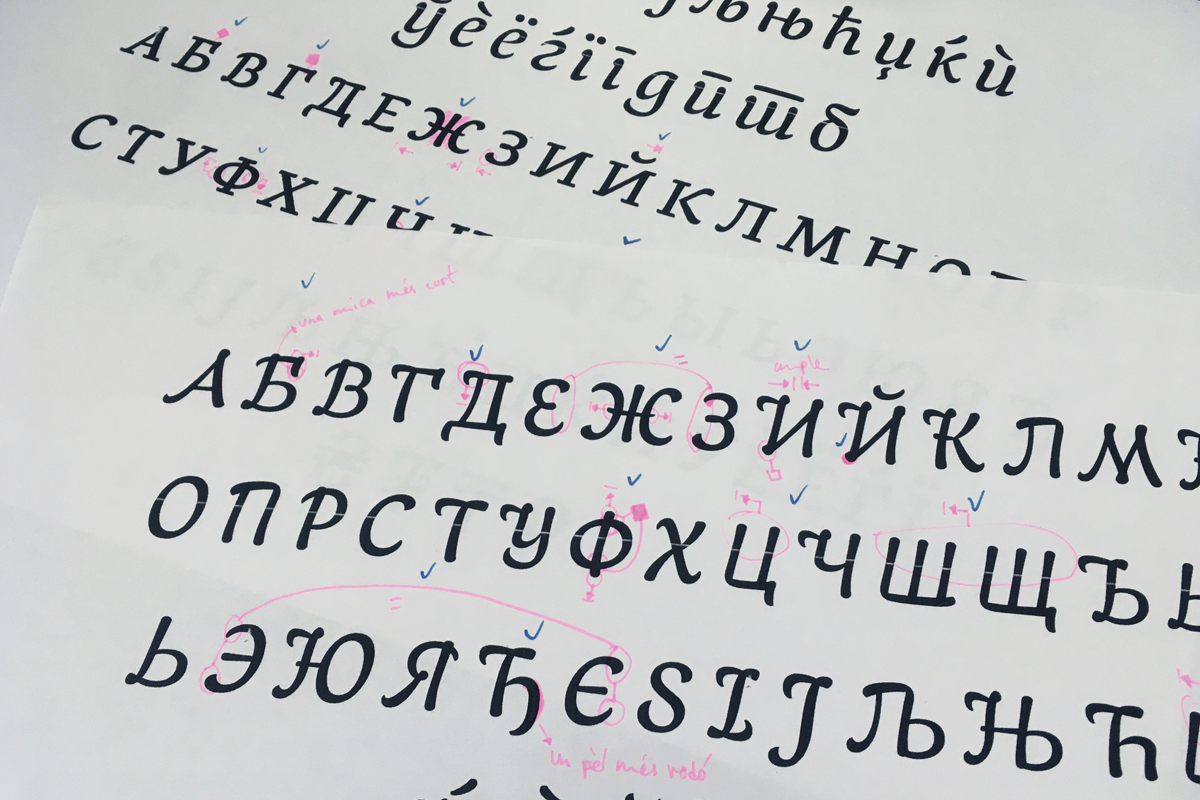 љњћџќѝ
ўѐёѓїīgūш̄б
АБВГДЕЖЗИЙКЛМНО
СТУФХЦЧ
una mica més curt
ample
АБВГДЕЖЗИЙКЛМ
ОПРСТУФХЦЧШЩЪ
ЬЭЮЯЂЄЅІЈЉЊЋ
un pèl més rodó